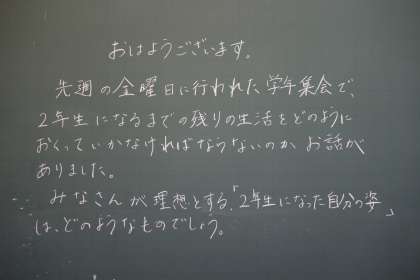 おはようございます。
先週の金曜日に行われた学年集会で、
2年生になるまでの残りの生活をどのように
おくっていかなければならないのか、お話が
ありました。
みなさんが理想とする、「2年生になった自分の姿」
は、どのようなものでしょう。